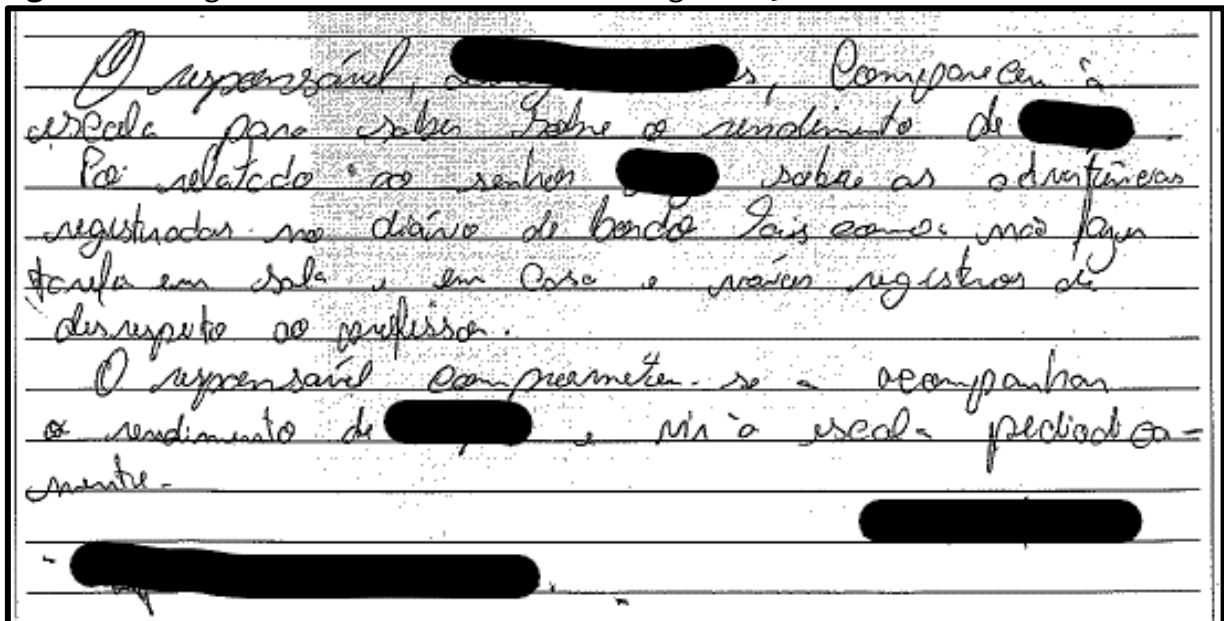 O responsável, s, compareceu à
escola para saber sobre o rendimento de .
Foi relatado ao senhor sobre as advertências
registradas no diário de bordo tais como: não fazer
tarefa em sala e em casa e vários registros de
desrespeito ao professor.
O responsável comprometeu-se a acompanhar
o rendimento de e vir à escola
mente.